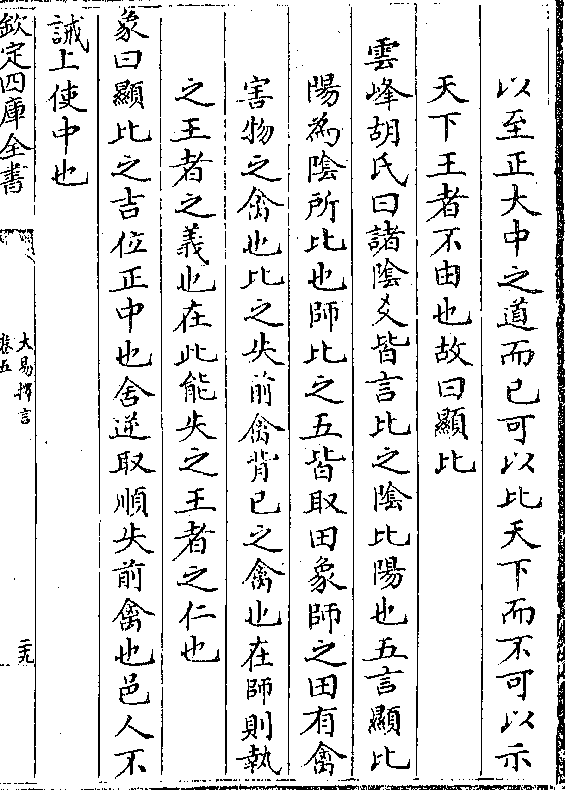 以至正大中之道而已可以比天下而不可以示
天下王者不由也故曰顯比
雲峰胡氏曰諸陰爻皆言比之陰比陽也五言顯比
陽為陰所比也師比之五皆取田象師之田有禽
害物之禽也比之失前禽背已之禽也在師則執
之王者之義也在此能失之王者之仁也
象曰顯比之吉位正中也舍逆取順失前禽也邑人不
誡上使中也
欽定四庫全書
大易擇言
卷五
二九